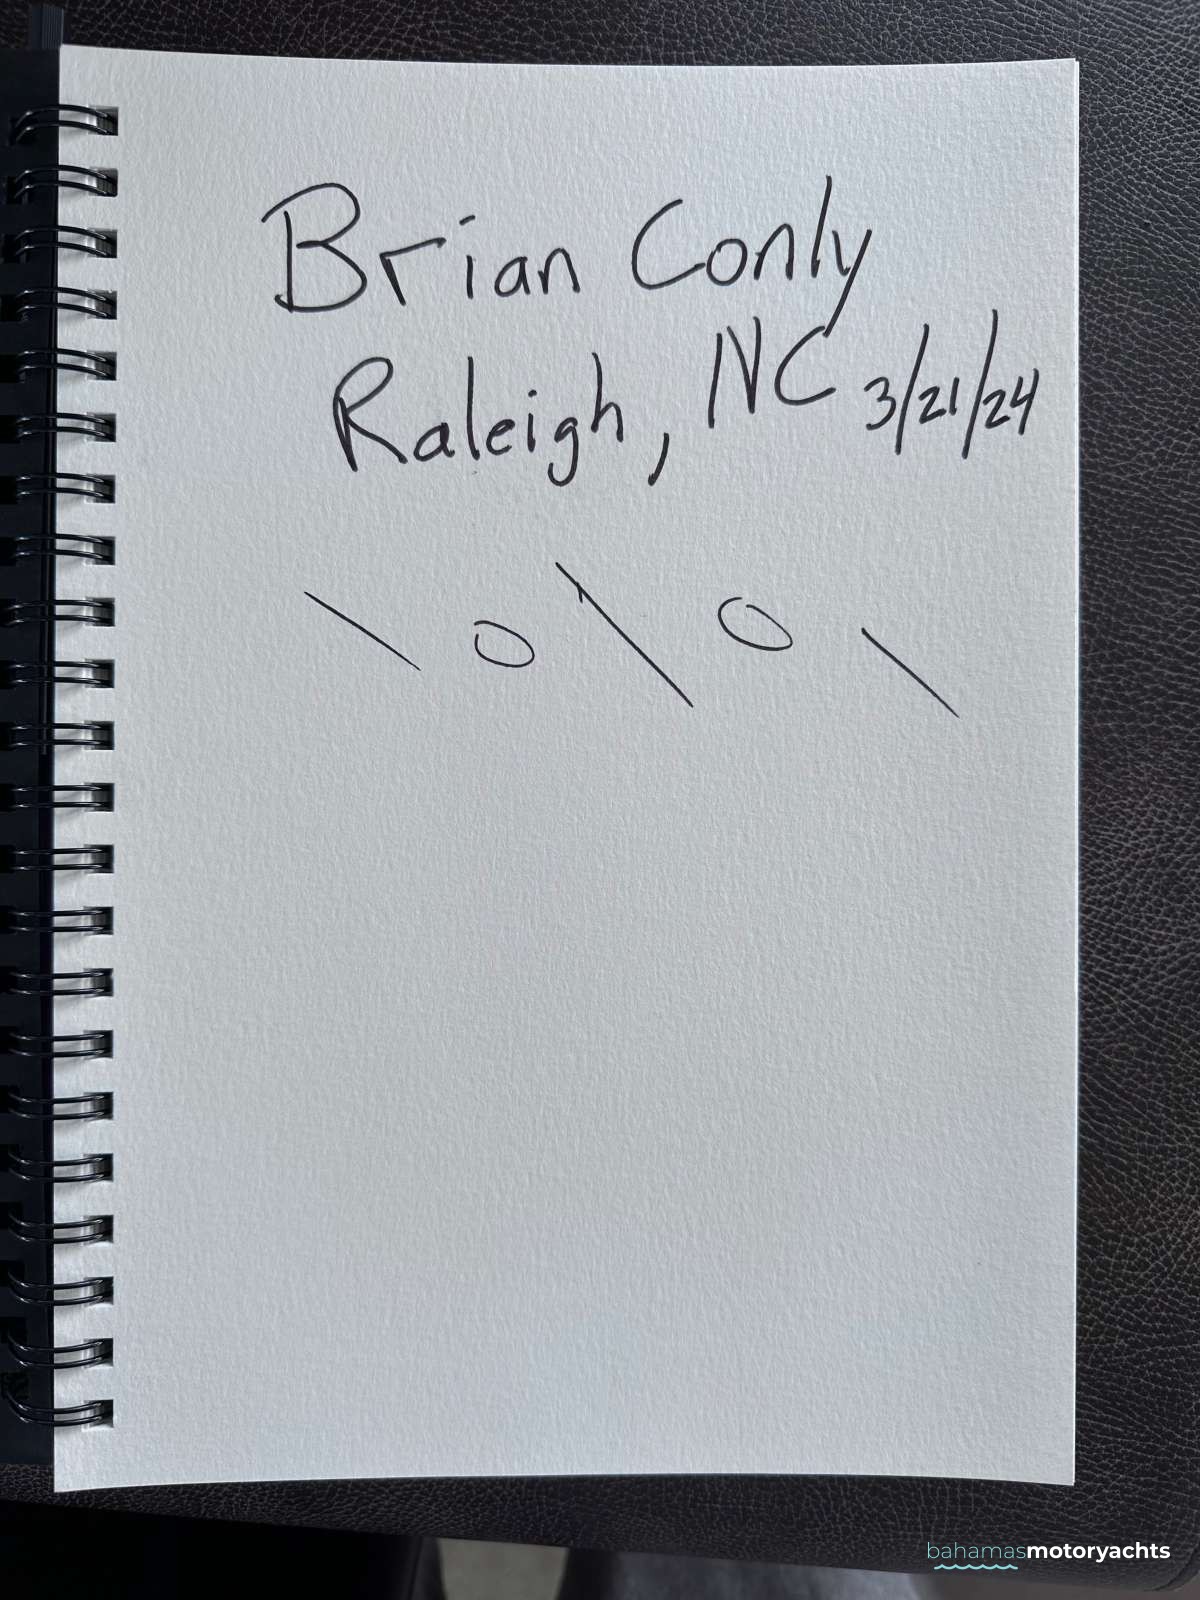 Brian Conly
Raleigh, NC 3/21/24
\ O \ O \
bahamasmotoryachts